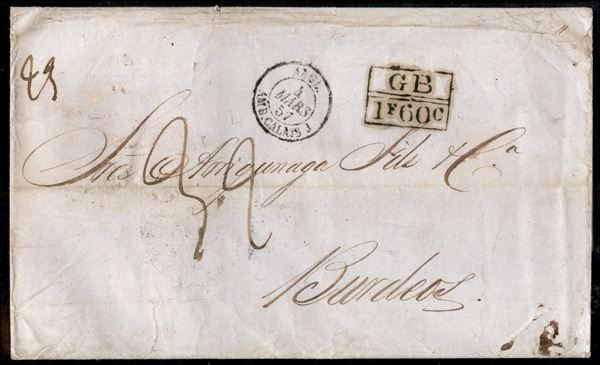 ANGL.
4
MARS
57
AMB. CALAIS J
GB
1F60C
Sres Aoriguenaga Fils & Ca
Burdeos.